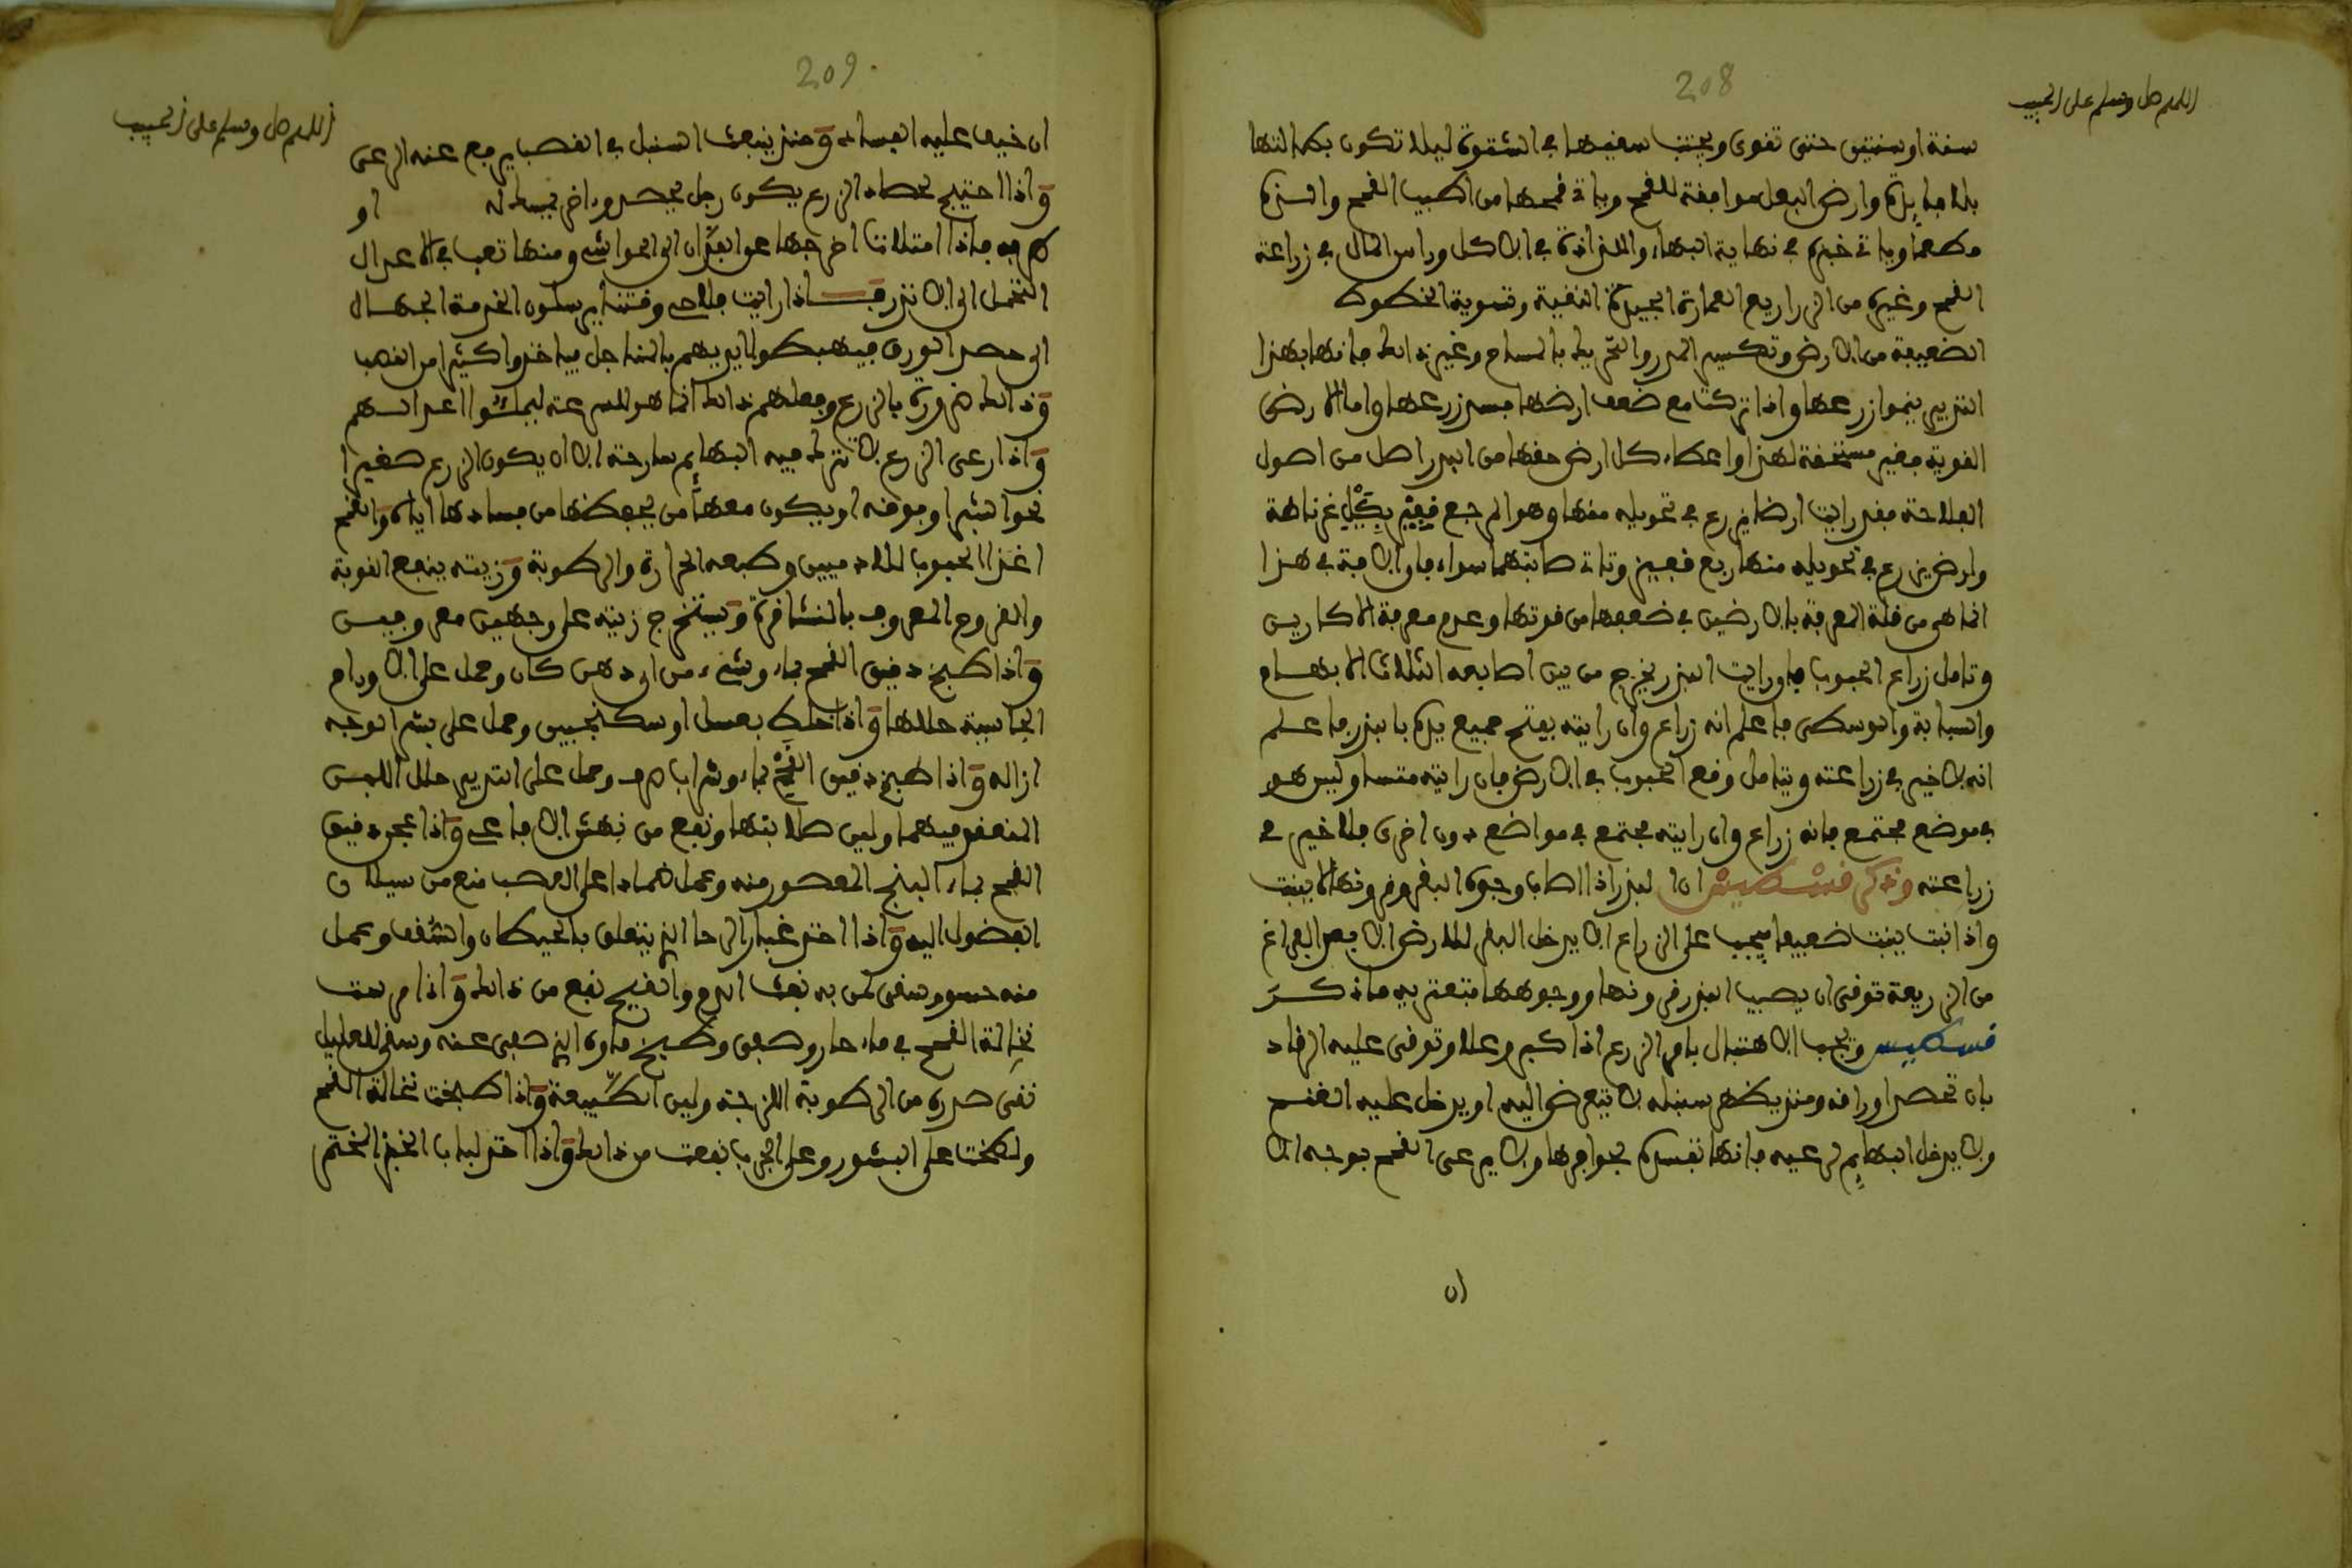 208
اللهم صل وسلم على الحبيب
سنة او سنتين حتى تقوى ويجتنب سقيها في الشتوة ليلا تكون بكرا لتها
بلا فايدة وارض البعل موافقة للقمح وياتى قمحها من اطيب القمح والـذه
مطعما وياتى خبزه في نهاية البهاء واللذاذة في الاكل وراس المال في زراعة
القمح وغيره من الزراريع العمارة الجيدة النقية وتسوية الخطوط
الضعيفة من الارض وتكسير المدر والتخريط بالمساح وغير ذالك فانها بهذا
التدبير ينموا زرعها واذا تركت مع ضعف ارضها فسد زرعها واما الارض
القوية فغير مستحقة لهذا واعطاء كل ارض حقها من البذر اصل من اصول
الفلاحة فقد رايت ارضا يزرع في تحويله منها وهو المرجع قفيز بكيل غرناطة
وارض يزرع في تحويله منها ربع قفيز وتات صابتهما سواء فالافة في هذا
انما هي من قلة المعرفة بالارضين في ضعفها من قوتها وعدم معرفة الاكاريس
وتامل زراع الحبوب فلو رايت البذر يخرج من بين اصابعه الثلاث الابهام
والسبابة والوسطى فاعلم انه زراع وان رايته يفتح جميع يده بالبذر فاعلم
انه لا خير في زراعته وتتامل وقع الحبوب في الارض فان رايته متساو ليس هو
في موضع مجتمع فانه زراع وان رايته مجتمع في مواضع دون اخرى فلا خير في
زراعته وذكر قسطيس ان البذر اذا اصاب وجوه البقر وقرونها لا ينبت
واذا نبت ينبت ضعيفا فيجب على الزراع الا يدخل البقر للارض الا بعد الفراغ
من الزريعة توقى ان يصيب البذر قرونها ووجوهها فتعتريه ما ذكر
قسطيس ويجب الاهتبال بامر الزرع اذا كبر وعلا وتوقى عليه الرقاد
بان تحصد اوراقه ومنذ يظهر سنبله لا يتعرض اليه او يدخل عليه القنم
ولا يدخل البهايم لرعيه فانها تفسده بحوافرها ولا يرعى القمح بوجه الا
ان
209
اللهم صل وسلم على الحبيب
ان خيف عليه الفساد ومنذ ينبعث السنبل في القصب يرفع عنه الرعى
واذا احتيج لحصاد الزرع يكون رجل يحصد وءاخر يبسط له او
طرفه فاذا امتلات اخرجها عن الفدان الى الحواشى ومنها تعب في الاعدال
التحمل الى الاندر فـاذا رايت فلاحى وقتنا يرسلون الخدمة الجهال
الى حصد الورق فيهبطوا ايديهم بالمناجل فياخذوا كثيرا من القصب
وذالك ضرورة بالزرع وفعلهم ذالك انما هو للسرعة ليملئوا اعدالهم
واذا رعى الزرع لا تترك فيه البهائم سارحة الا ان يكون الزرع صغيرا
نحو الشبر او فوقه او يكون معها من يحفظها من فسادها اياه والقمح
اغذا الحبوب للادميين وطبعه الحرارة والرطوبة وزيته ينفع القوبة
والقروح المعروف بالنشافرة ويستخرج زيته على وجهين معروفين
واذا طبخ دقيق القمح بماء وشىء من اى دهن كان وحمل على الاورام
الجاسية حللها واذا خلط بعسل او سكنجبين وحمل على بشر الوجه
ازاله واذا طبخ دقيق القمح بماء وشراب صرف وحمل على الثديين حلل اللبن
المنعقد فيهما ولين صلابتها ونفع من نهش الافاعى واذا عجن دقيق
القمح بماء البنج المعصور منه وعمل ضمادا على العصب منع من سيلان
الفضول اليه واذا اخذ غبار الرحا الذى يتعلق بالحيطان والسقف وعمل
منه حسو وسقى لمن به نفث الدم والقيح نفع من ذالك واذا مرست
نخالة القمح في ماء حار وصفى وطبخ ماوه الذى صفى عنه وسقى للعليل
نقى صدره من الرطوبة اللزجة ولين الطبيعة واذا طبخت نخالة القمح
ولطخت على البشور وعلى الجرب نفعت من ذالك واذا اخذ لباب الخبز المختمر